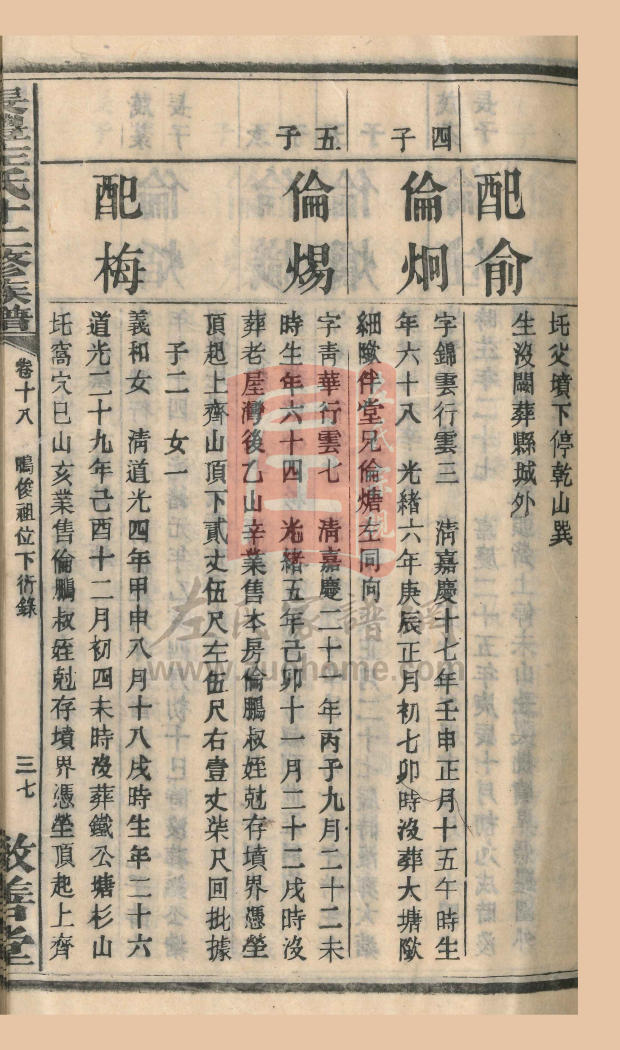 配俞
坵父墳下停乾山巽
生沒闕葬縣城外
四子
倫炯
字錦雲行雲三 淸嘉慶十七年壬申正月十五午時生
年六十八 光緒六年庚辰正月初七卯時沒葬大塘陂
細陂伴堂兄倫煻左同向
五子
倫煬
字靑華行雲七 淸嘉慶二十一年丙子九月二十二未
時生年六十四 光緒五年己卯十一月二十二戌時沒
葬老屋灣後乙山辛業售本房倫鵬叔姪尅存墳界憑塋
頂起上齊山頂下貳丈伍尺左伍尺右壹丈柒尺回批據
子二 女一
配梅
義和女 淸道光四年甲申八月十八戌時生年二十六
道光二十九年己酉十二月初四未時沒葬鐵公塘杉山
坵窩穴巳山亥業售倫鵬叔姪尅存墳界憑塋頂起上齊
左氏十二修族譜
卷十八 鵰俊祖位下衍錄 三七
敦善堂
左氏家譜網
www.zuohome.com